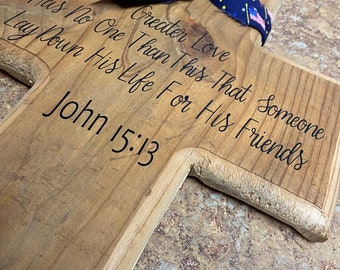 Greater Love
Has No One Than This That Someone
Lay Down His Life For His Friends
John 15:13